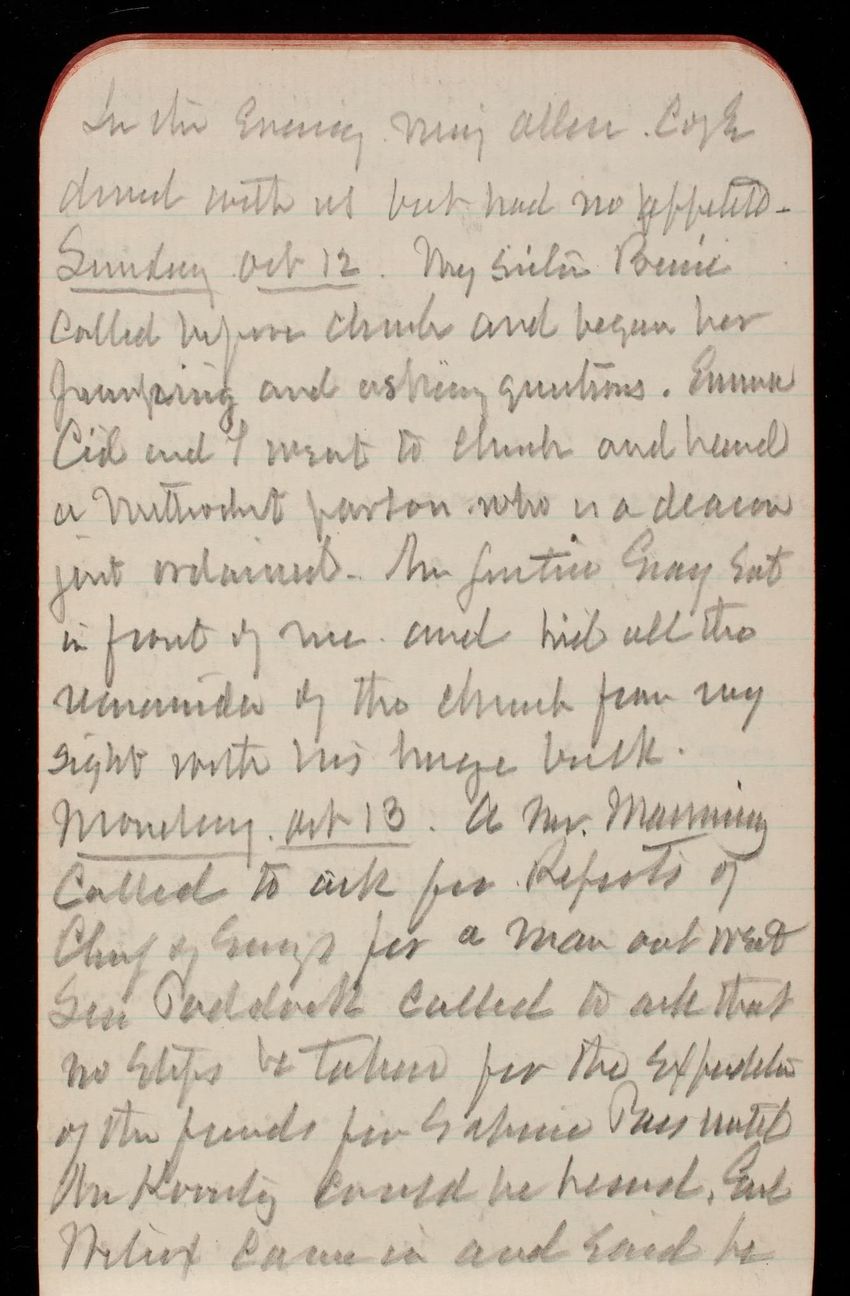 In the Evening. Miss Allen. Coyle
dined with us but had no appetite -
Sunday Oct 12. My sister Bessie
Called before church and began her
pumping and asking questions. Emma
Cid and I went to church and heard
a Methodist parson who is a deacon
just ordained - Mr Justice Gray Sat
in front of me and hid all the
remainder of the church from my
sight with his huge back.
Monday. Oct 13. A Mr. Manning
Called to ask for Reports of
Chief of Engrs for a man out west
Gen Paddock called to ask that
no Steps be taken for the Expenditure
of the funds for Sabine Pass until
Mr Kountz could be heard. Gen
Wilcox came in and said he